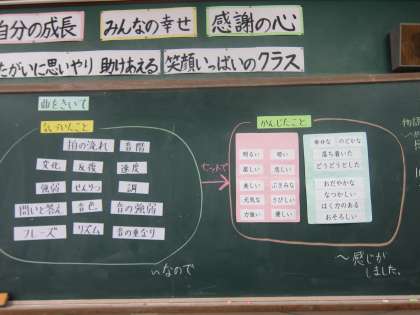 自分の成長
みんなの幸せ
感謝の心
たがいに思いやり 助けあえる
笑顔いっぱいのクラス
曲をきいて
気づいたこと
拍の流れ 音階
文化 反復 速度
強弱 せんりつ 調
問いと答え 音色 音の強弱
フレーズ リズム 音の重なり
いなので
セットで
かんじたこと
明るい 暗い
楽しい 悲しい
美しい ぶきみな
元気な さびしい
力強い 優しい
幸せな のどかな
落ち着いた
どうどうとした
おだやかな
なつかしい
はく力のある
おそろしい
〜感じが
しました。